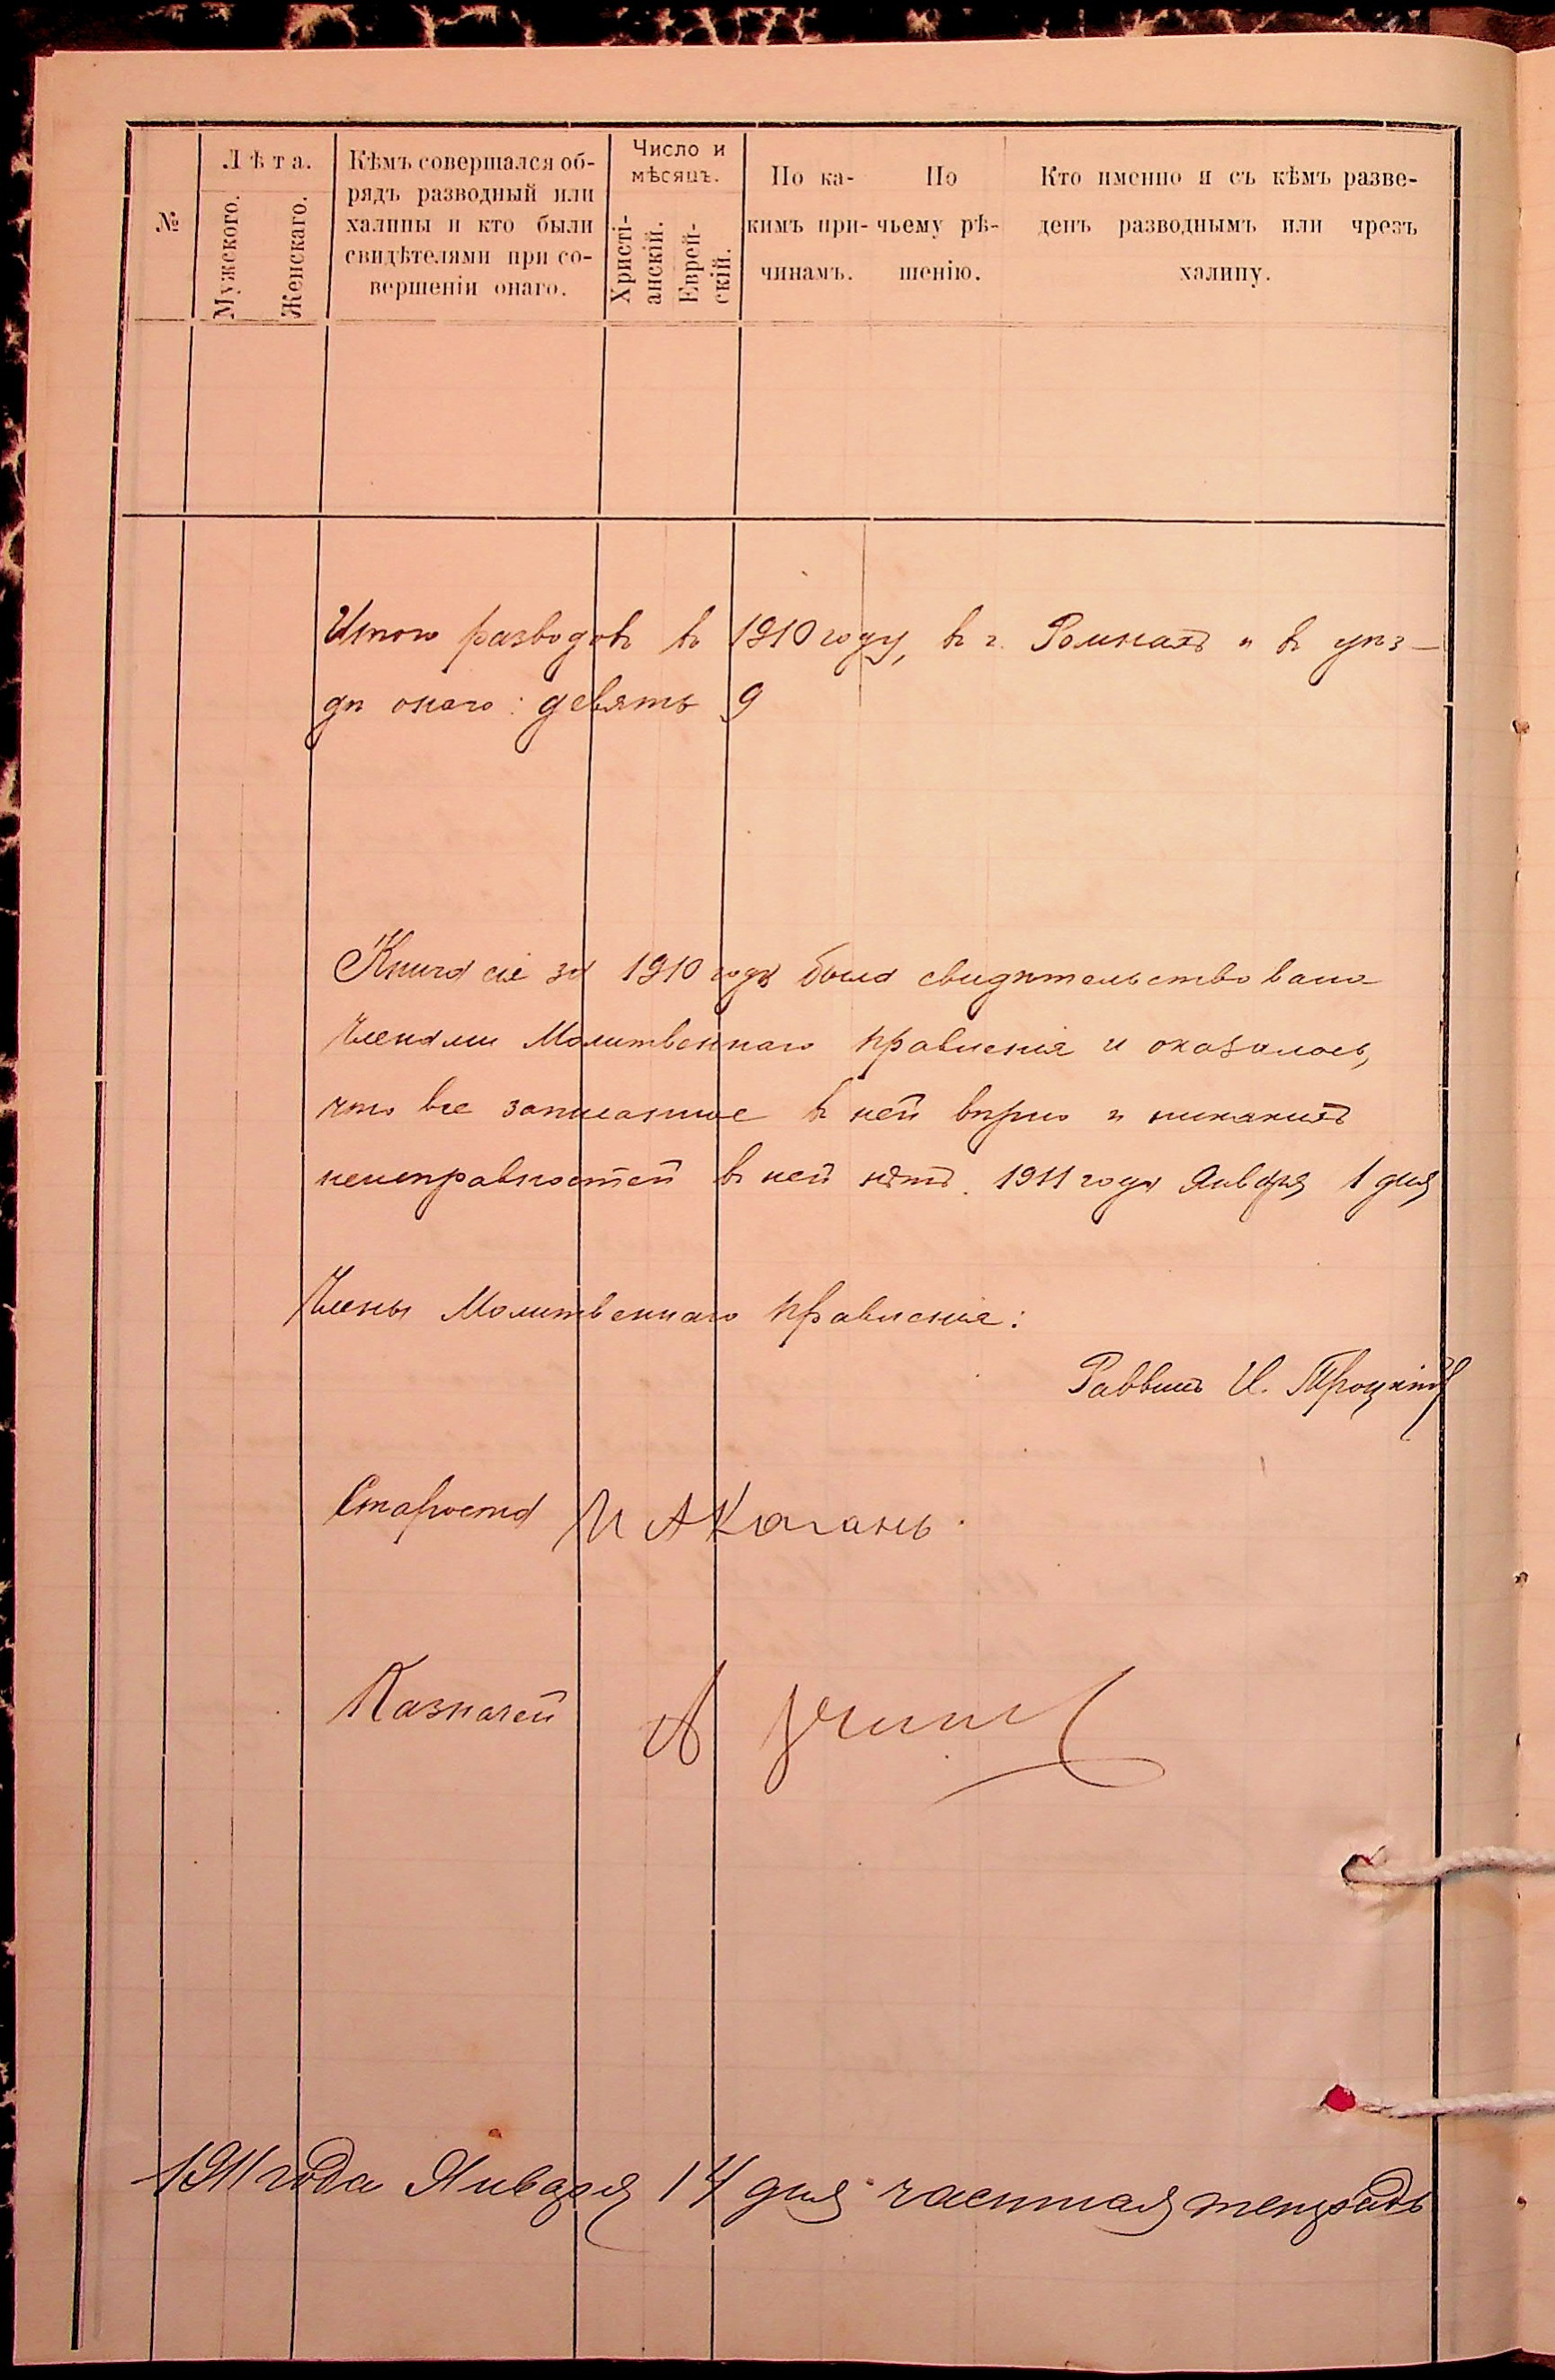 №
Лѣта.
Мужского.
Женскаго.
Кѣмъ совершался об-
рядъ разводный или
халицы и кто были
свидѣтелями при со-
вершеніи онаго.
Число и
мѣсяцъ.
Христі-
анскій.
Еврей-
скій.
По ка-
кимъ при-
чинамъ.
По
чьему рѣ-
шенію.
Кто именно и съ кѣмъ разве-
денъ разводнымъ или чрезъ
халицу.
Итого разводовъ въ 1910 году, въ г. Ромнахъ и въ уѣз-
дѣ онаго: девять 9
Книга сія за 1910 годъ была свидѣтельствована
Членами Молитвеннаго правленія и оказалось,
что все записанное въ ней вѣрно и никакихъ
неисправностей въ ней нѣтъ. 1911 года Января 1 дня
Члены Молитвеннаго правленія:
Раввинъ И. Троцкій
Староста И А Коганъ.
Казначей А
1911 года Января 14 дня частная тетрадь